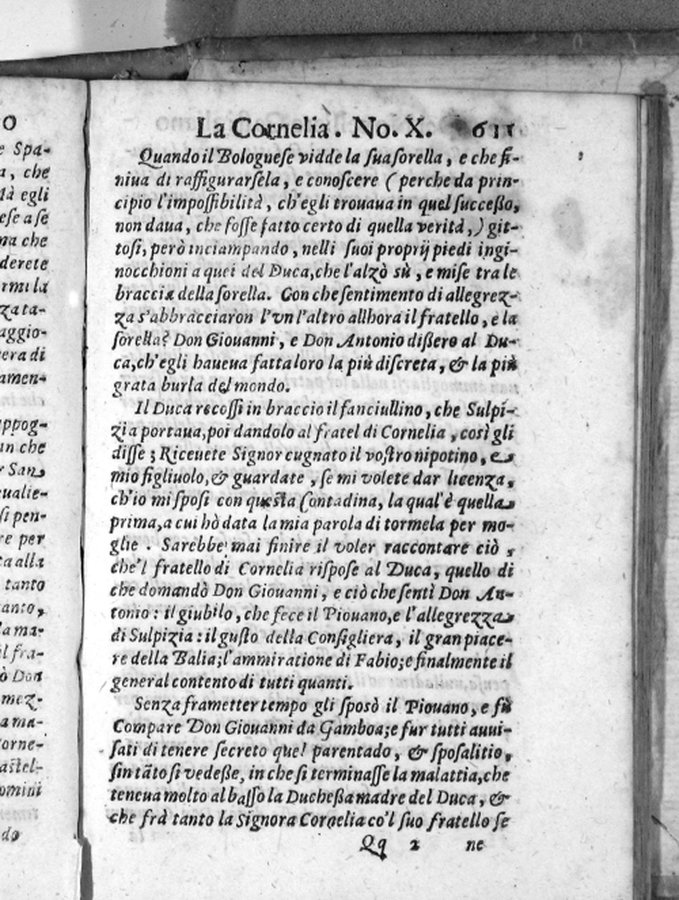 La Cornelia. No. X. 611
Quando il Bolognese vidde la sua sorella, e che fi-
niua di raffigurarsela, e conoscere (perche da prin-
cipio l'impossibilità, ch'egli trouaua in quel successo,
non daua, che fosse fatto certo di quella verità,) git-
tosi, però inciampando, nelli suoi proprij piedi ingi-
nocchioni a quei del Duca, che l'alzò sù, e mise tra le
braccia della sorella. Con che sentimento di allegrez-
za s'abbracciaron l'vn l'altro allhora il fratello, e la
sorella? Don Giouanni, e Don Antonio dissero al Du-
ca, ch'egli haueua fatta loro la più discreta, & la più
grata burla del mondo.
Il Duca recossi in braccio il fanciullino, che Sulpi-
zia portaua, poi dandolo al fratel di Cornelia, così gli
disse; Riceuete Signor cugnato il vostro nipotino, e
mio figliuolo, & guardate, se mi volete dar licenza,
ch'io mi sposi con questa Contadina, la qual'è quella
prima, a cui hò data la mia parola di tormela per mo-
glie. Sarebbe mai finire il voler raccontare ciò,
che'l fratello di Cornelia rispose al Duca, quello di
che domandò Don Giouanni, e ciò che sentì Don An-
tonio: il giubilo, che fece il Piouano, e l'allegrezza
di Sulpizia: il gusto della Consigliera, il gran piace-
re della Balia; l'ammiratione di Fabio; e finalmente il
general contento di tutti quanti.
Senza frametter tempo gli sposò il Piouano, e fù
Compare Don Giouanni da Gamboa; e fur tutti auui-
sati di tenere secreto quel parentado, & sposalitio,
sin tãto si vedesse, in che si terminasse la malattia, che
teneua molto al basso la Duchessa madre del Duca, &
che frà tanto la Signora Cornelia co'l suo fratello se
Qq 2 ne